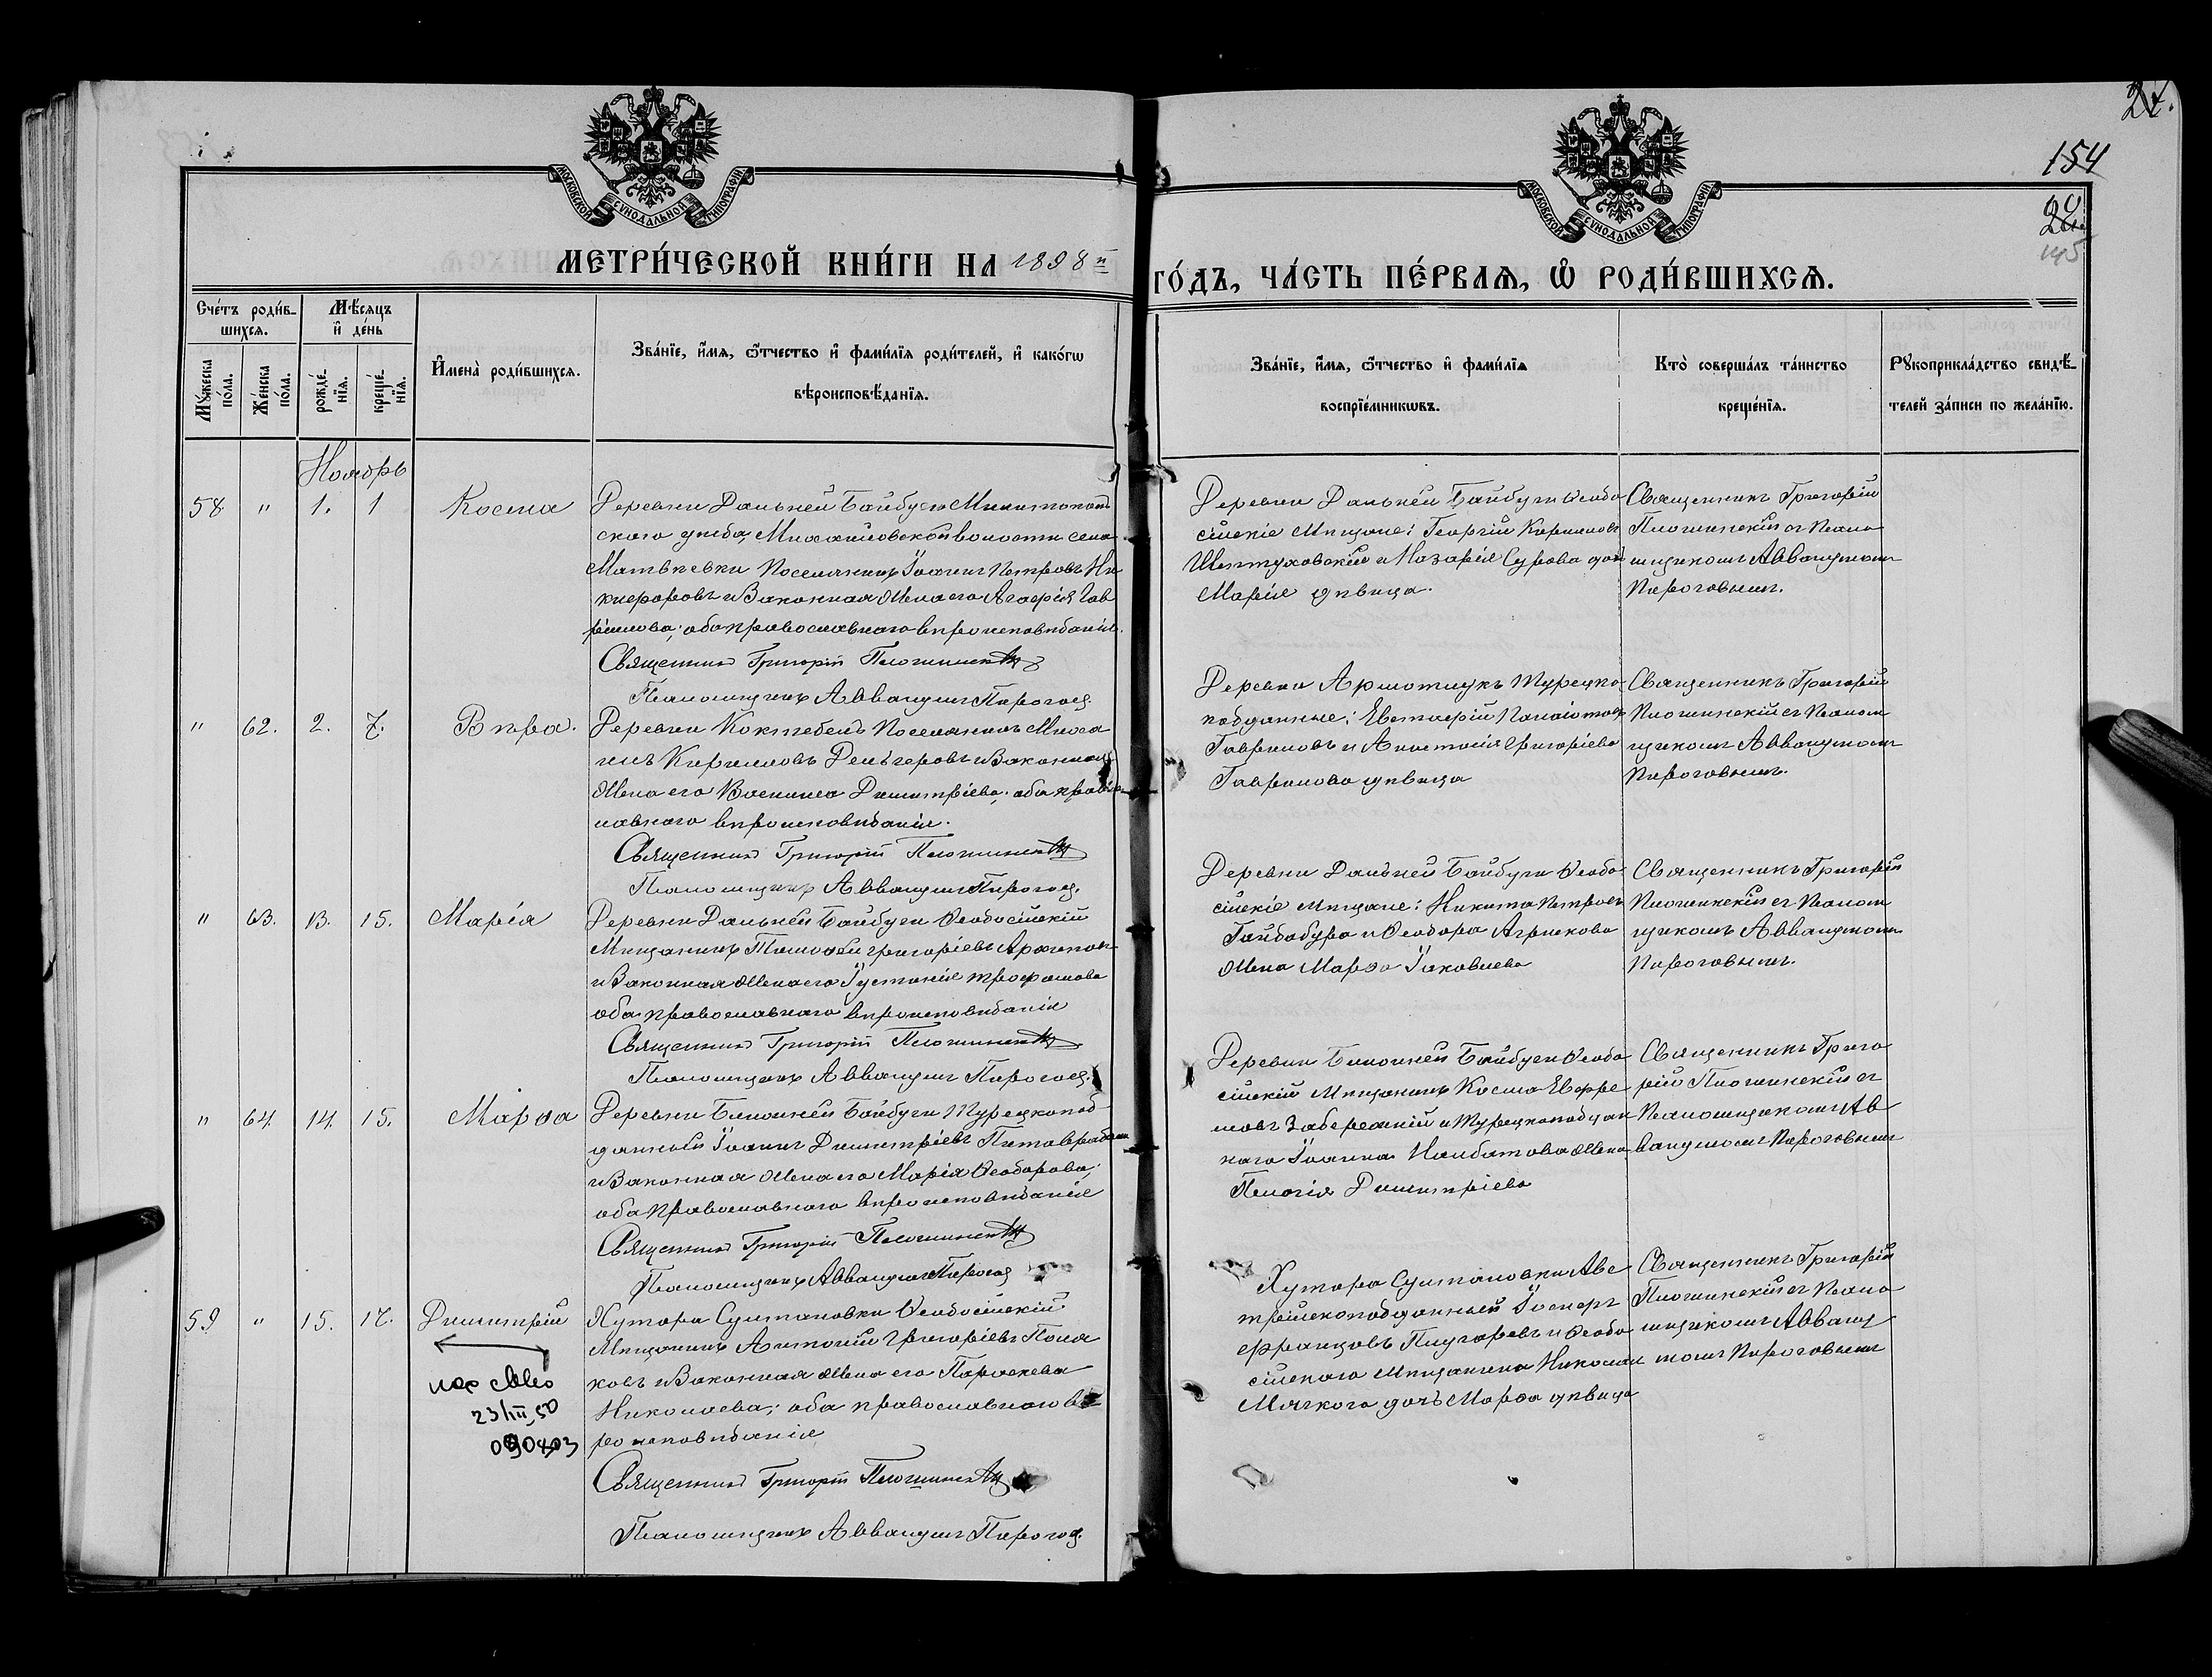 24.
154
145
МОСКОВСКОЙ СѴНОДАЛЬНОЙ ТИПОГРАФІИ
МОСКОВСКОЙ СѴНОДАЛЬНОЙ ТИПОГРАФІИ
МЕТРИ́ЧЕСКОЙ КНИ́ГИ НА 1898 й
ГО́ДЪ, ЧА́СТЬ ПЕ́РВАЯ, Ѡ РОДИ́ВШИХСЯ.
Сче́тъ роди́в-
шихся.
Мѣ́сяцъ
и де́нь
Му́жеска по́ла.
Же́нска по́ла.
рожде́нїя.
креще́нїя.
И҆мена̀ роди́вшихся.
Зва́нїе, и҆́мя, ѻ҆́тчество и҆ фами́лїя роди́телей, и҆ како́гѡ
вѣроисповѣ́данїя.
Зва́нїе, и҆́мя, ѻ҆́тчество и҆ фами́лїя
воспрїе́мникѡвъ.
Кто̀ соверша́лъ та́инство
креще́нїя.
Рукоприкла́дство свидѣ́-
телей за́писи по жела́нїю.
Ноябрь
58 " 1. 1 Косма
Деревни Дальней Байбуги Мелитополь
скаго уѣзда, Михайловской волости села
Матвѣевки Поселянинъ Іоаннъ Петровъ Ни
кифоровъ и Законная Жена его Агафія Гав
рілова; оба православнаго вѣроисповѣданія.
Священникъ Григорій
Псаломщикъ Аввакумъ Пирогов
Деревни Дальней Байбуги Ѳеодо
сійскіе Мѣщане: Георгій Кириловъ
и Назарія Сурова дочь
Марія дѣвица.
Священникъ Григорій
съ Псало
мщикомъ Аввакумомъ
Пироговымъ.
" 62. 2. 7. Вѣра.
Деревни Коктебель Поселянинъ Миха
илъ Кириловъ и Законная
Жена его Василиса Димитріева; оба правос
лавнаго вѣроисповѣданія.
Священникъ Григорій
Псаломщикъ Аввакумъ Пирогов
Деревни Турецко
подданные: Евстафій Панаіотовъ
Гавриловъ и Анастасія Григоріева
Гаврилова дѣвица
Священникъ Григорій
съ Псалом
щикомъ Аввакумомъ
Пироговымъ.
" 63. 13. 15. Марія
Деревни Дальней Байбуги Ѳеодосійскій
Мѣщанинъ Тимоѳей Григоріевъ
и Законная Жена его Іустинія Трофимова
оба православнаго вѣроисповѣданія
Священникъ Григорій
Псаломщикъ Аввакумъ Пирогов
Деревни Дальней Байбуги Ѳеодо
сійскіе Мѣщане: Никита Петровъ
Гайдабура и Ѳеодора
Жена Марѳа Іаковлева
Священникъ Григорій
съ Псалом
щикомъ Аввакумомъ
Пироговымъ.
" 64. 14. 15. Марѳа
Деревни Ближней Байбуги Турецкопод
данный Іоаннъ Димитріевъ
и Законная Жена его Марія Ѳеодорова;
оба Православнаго вѣроисповѣданія
Священникъ Григорій
Псаломщикъ Аввакумъ Пирогов
Деревни Ближней Байбуги Ѳеодо
сійскій Мѣщанинъ Косма Ефре
мовъ и Турецкоподдан
наго Іоанна Жена
Пелагія Димитріева
Священникъ Григо
рій съ
Псаломщикомъ Ав
вакумомъ Пироговымъ
59 " 15. 17. Димитрій
Хутора Султановки Ѳеодосійскій
Мѣщанинъ Антоній Григоріевъ Поля
ковъ и Законная Жена его Параскева
Николаева; оба православнаго вѣ
роисповѣданія
Священникъ Григорій
Псаломщикъ Аввакумъ Пирогов
23/III, 50
Хутора Султановки Авс
трійскоподданный Іосифъ
Францовъ и Ѳеодо
сійскаго Мѣщанина Николая
Мягкого дочь Марѳа дѣвица
Священникъ Григорій
съ Псало
мщикомъ Авваку
момъ Пироговымъ